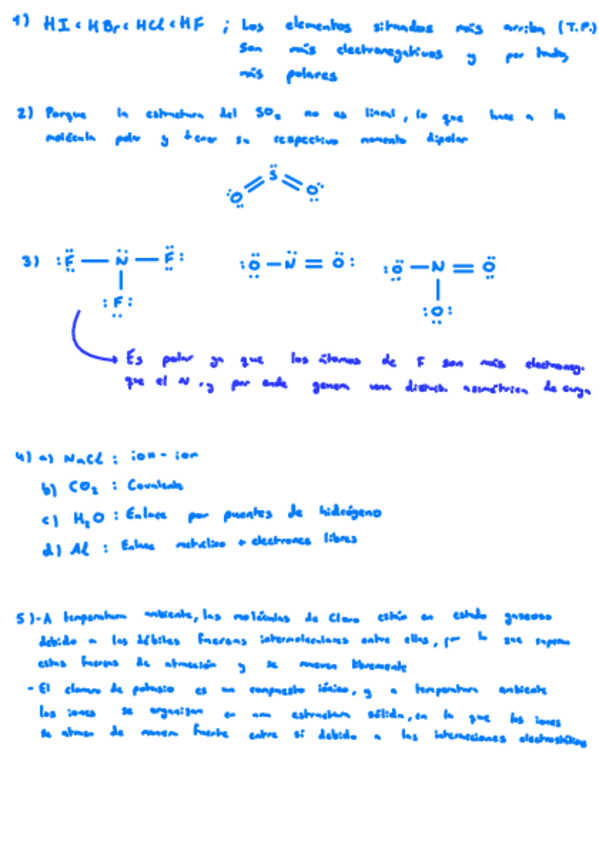 1) HI < HBr < HCl < HF ; Los elementos situados más arriba (T.P.)
son más electronegativos y por tanto,
más polares
2) Porque la estructura del SO₂ no es lineal, lo que hace a la
molécula polar y tener su respectivo momento dipolar
O = S = O
3) F — N — F O — N = O O — N = O
F O
Es polar ya que los átomos de F son más electroneg.
que el N, y por ende generan una distrib. asimétrica de carga
4) a) NaCl : ion - ion
b) CO₂ : Covalente
c) H₂O : Enlace por puentes de hidrógeno
d) Al : Enlace metálico + electrones libres
5) - A temperatura ambiente, las moléculas de Cloro están en estado gaseoso
debido a las débiles fuerzas intermoleculares entre ellas, por lo que superan
estas fuerzas de atracción y se mueven libremente
- El cloruro de potasio es un compuesto iónico, y a temperatura ambiente
los iones se organizan en una estructura sólida, en la que los iones
se atraen de manera fuerte entre sí debido a las interacciones electrostáticas